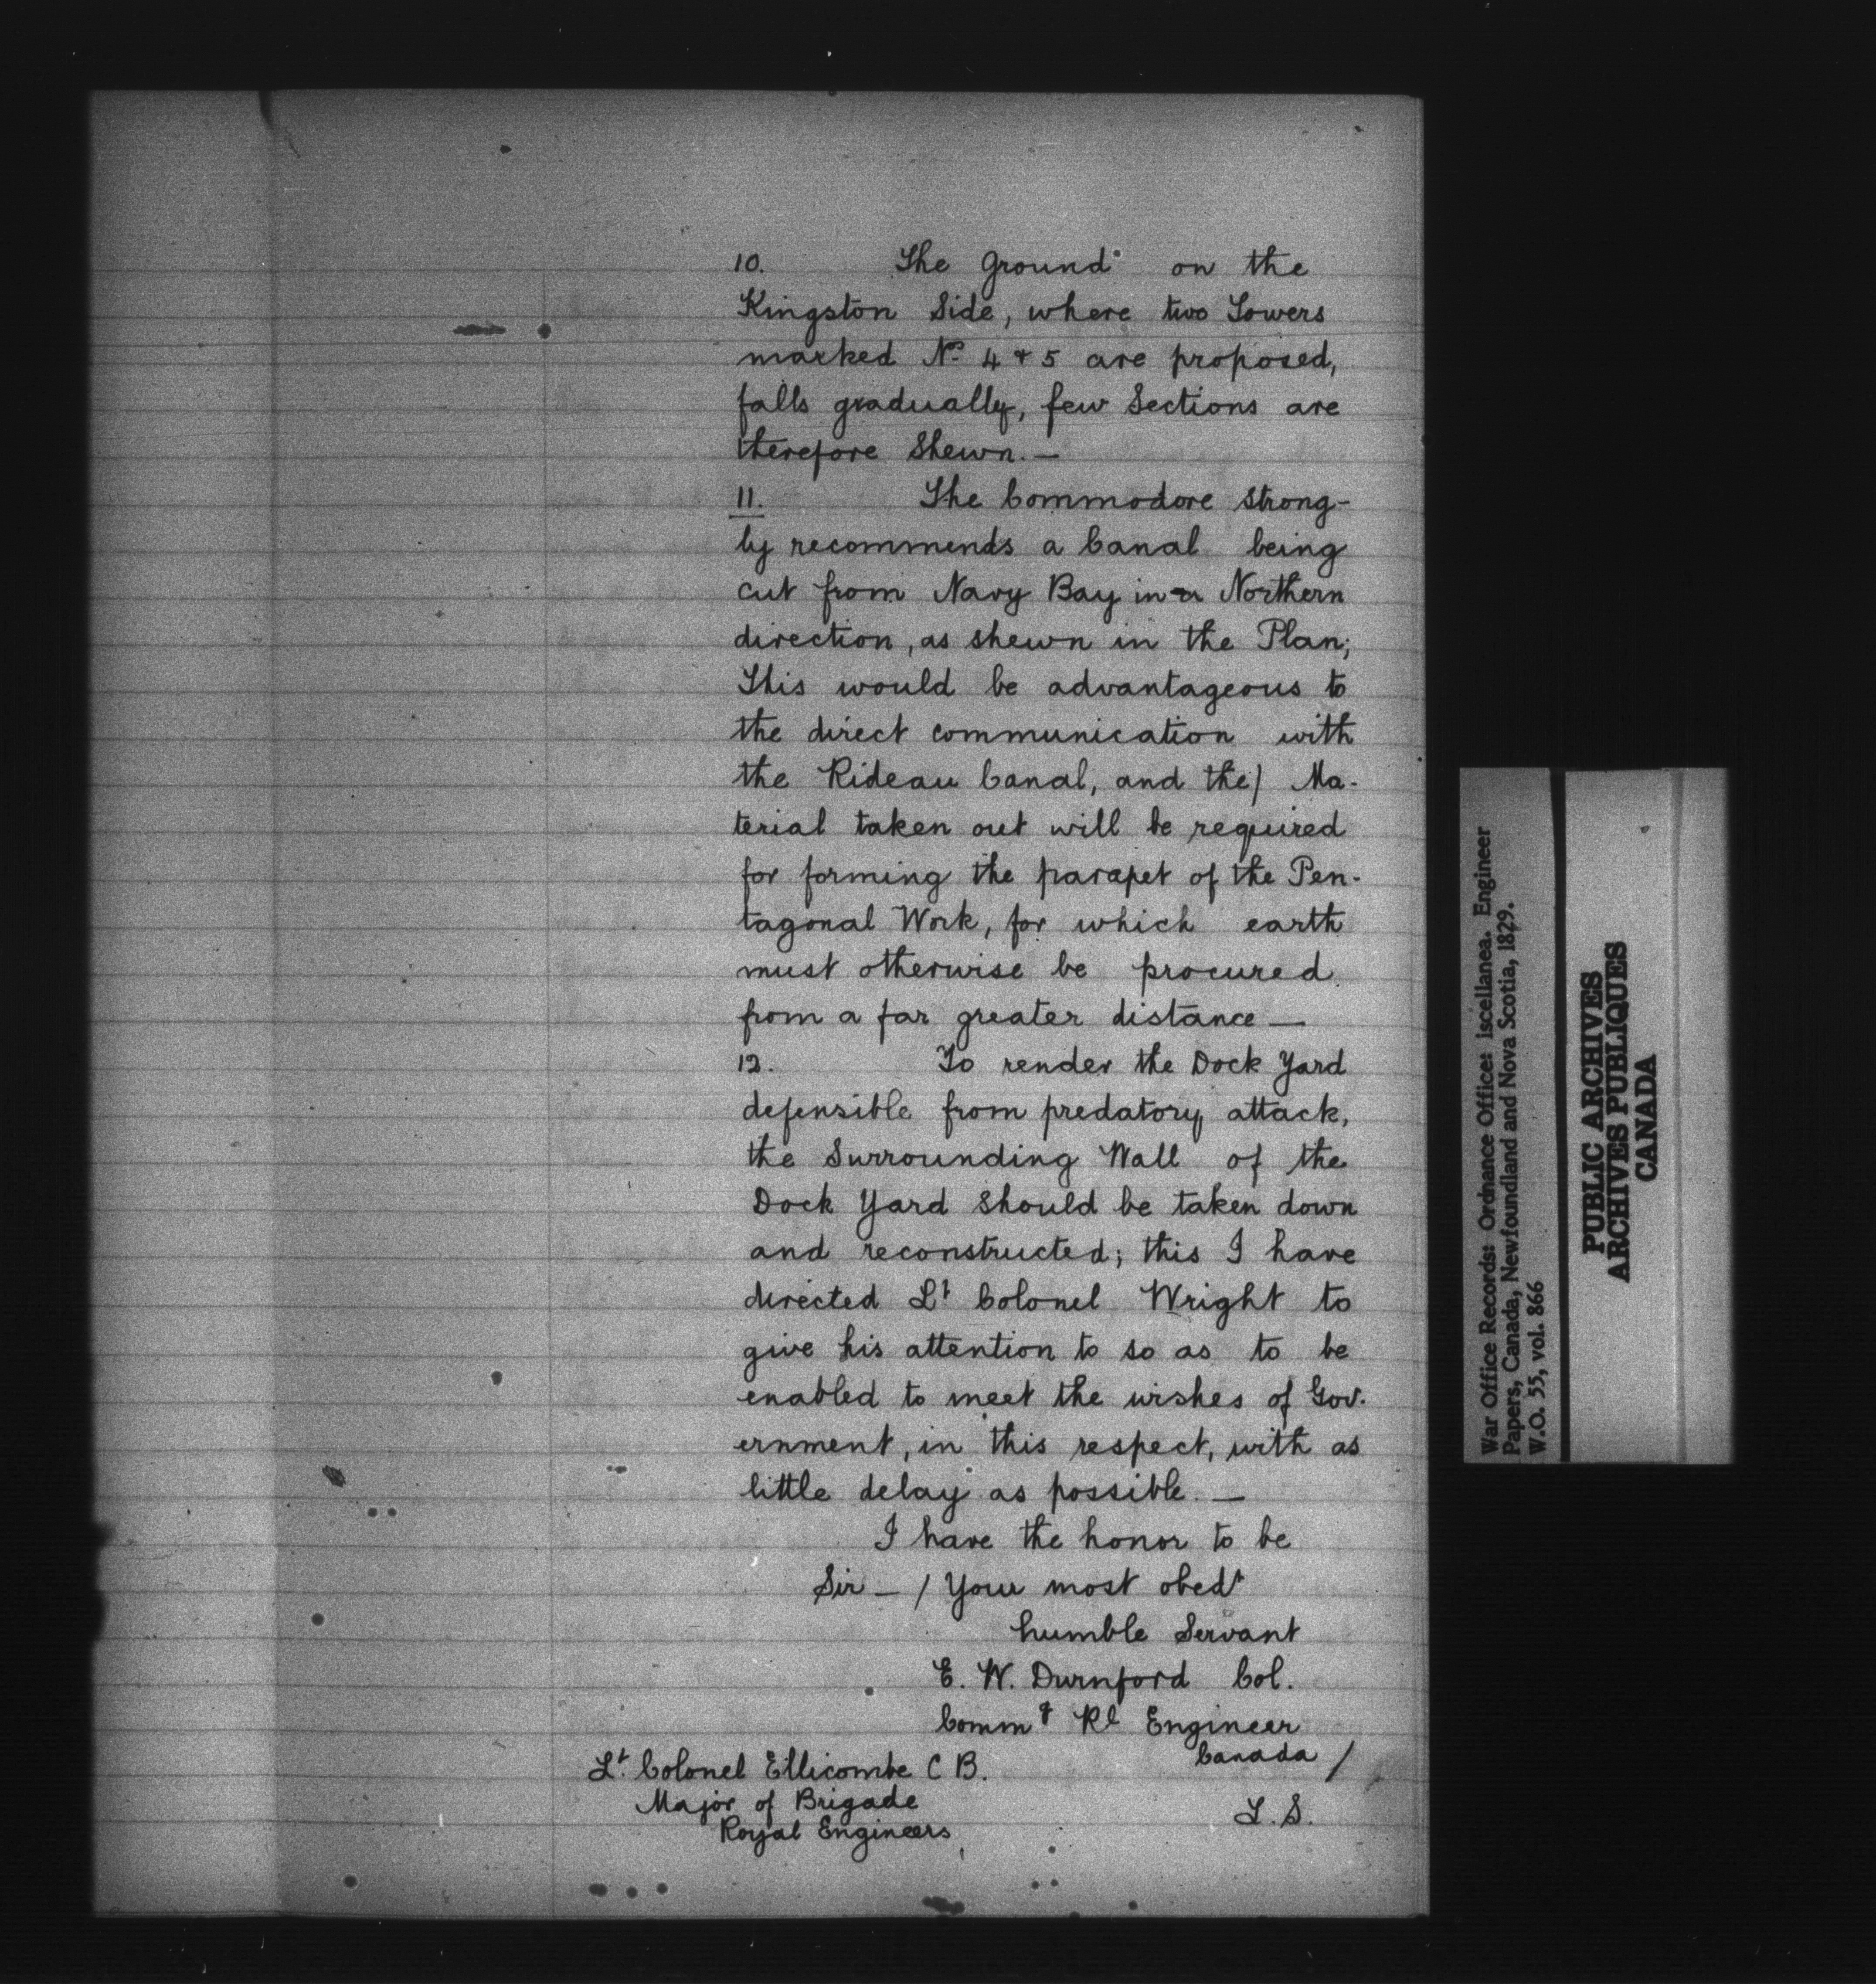 10. The Ground on the
Kingston Side, where two Towers
marked Nos 4 & 5 are proposed,
falls gradually, few Sections are
therefore Shewn. —
11. The Commodore strong-
ly recommends a Canal being
cut from Navy Bay in a Northern
direction, as shewn in the Plan;
This would be advantageous to
the direct communication with
the Rideau Canal, and the) Ma-
terial taken out will be required
for forming the parapet of the Pen-
tagonal Work, for which earth
must otherwise be procured
from a far greater distance —
12. To render the Dock Yard
defensible from predatory attack,
the Surrounding Wall of the
Dock Yard should be taken down
and reconstructed; this I have
directed Lt Colonel Wright to
give his attention to so as to be
enabled to meet the wishes of Gov-
ernment, in this respect, with as
little delay as possible. —
I have the honor to be
Sir — / Your most obedt
humble Servant
E. W. Durnford Col.
Commg Rl Engineer
Canada /
Lt. Colonel Ellicombe C B.
Major of Brigade
Royal Engineers
L.S.
War Office Records: Ordnance Office: iscellanea. Engineer
Papers, Canada, Newfoundland and Nova Scotia, 1829.
W.O. 55, vol. 866
PUBLIC ARCHIVES
ARCHIVES PUBLIQUES
CANADA